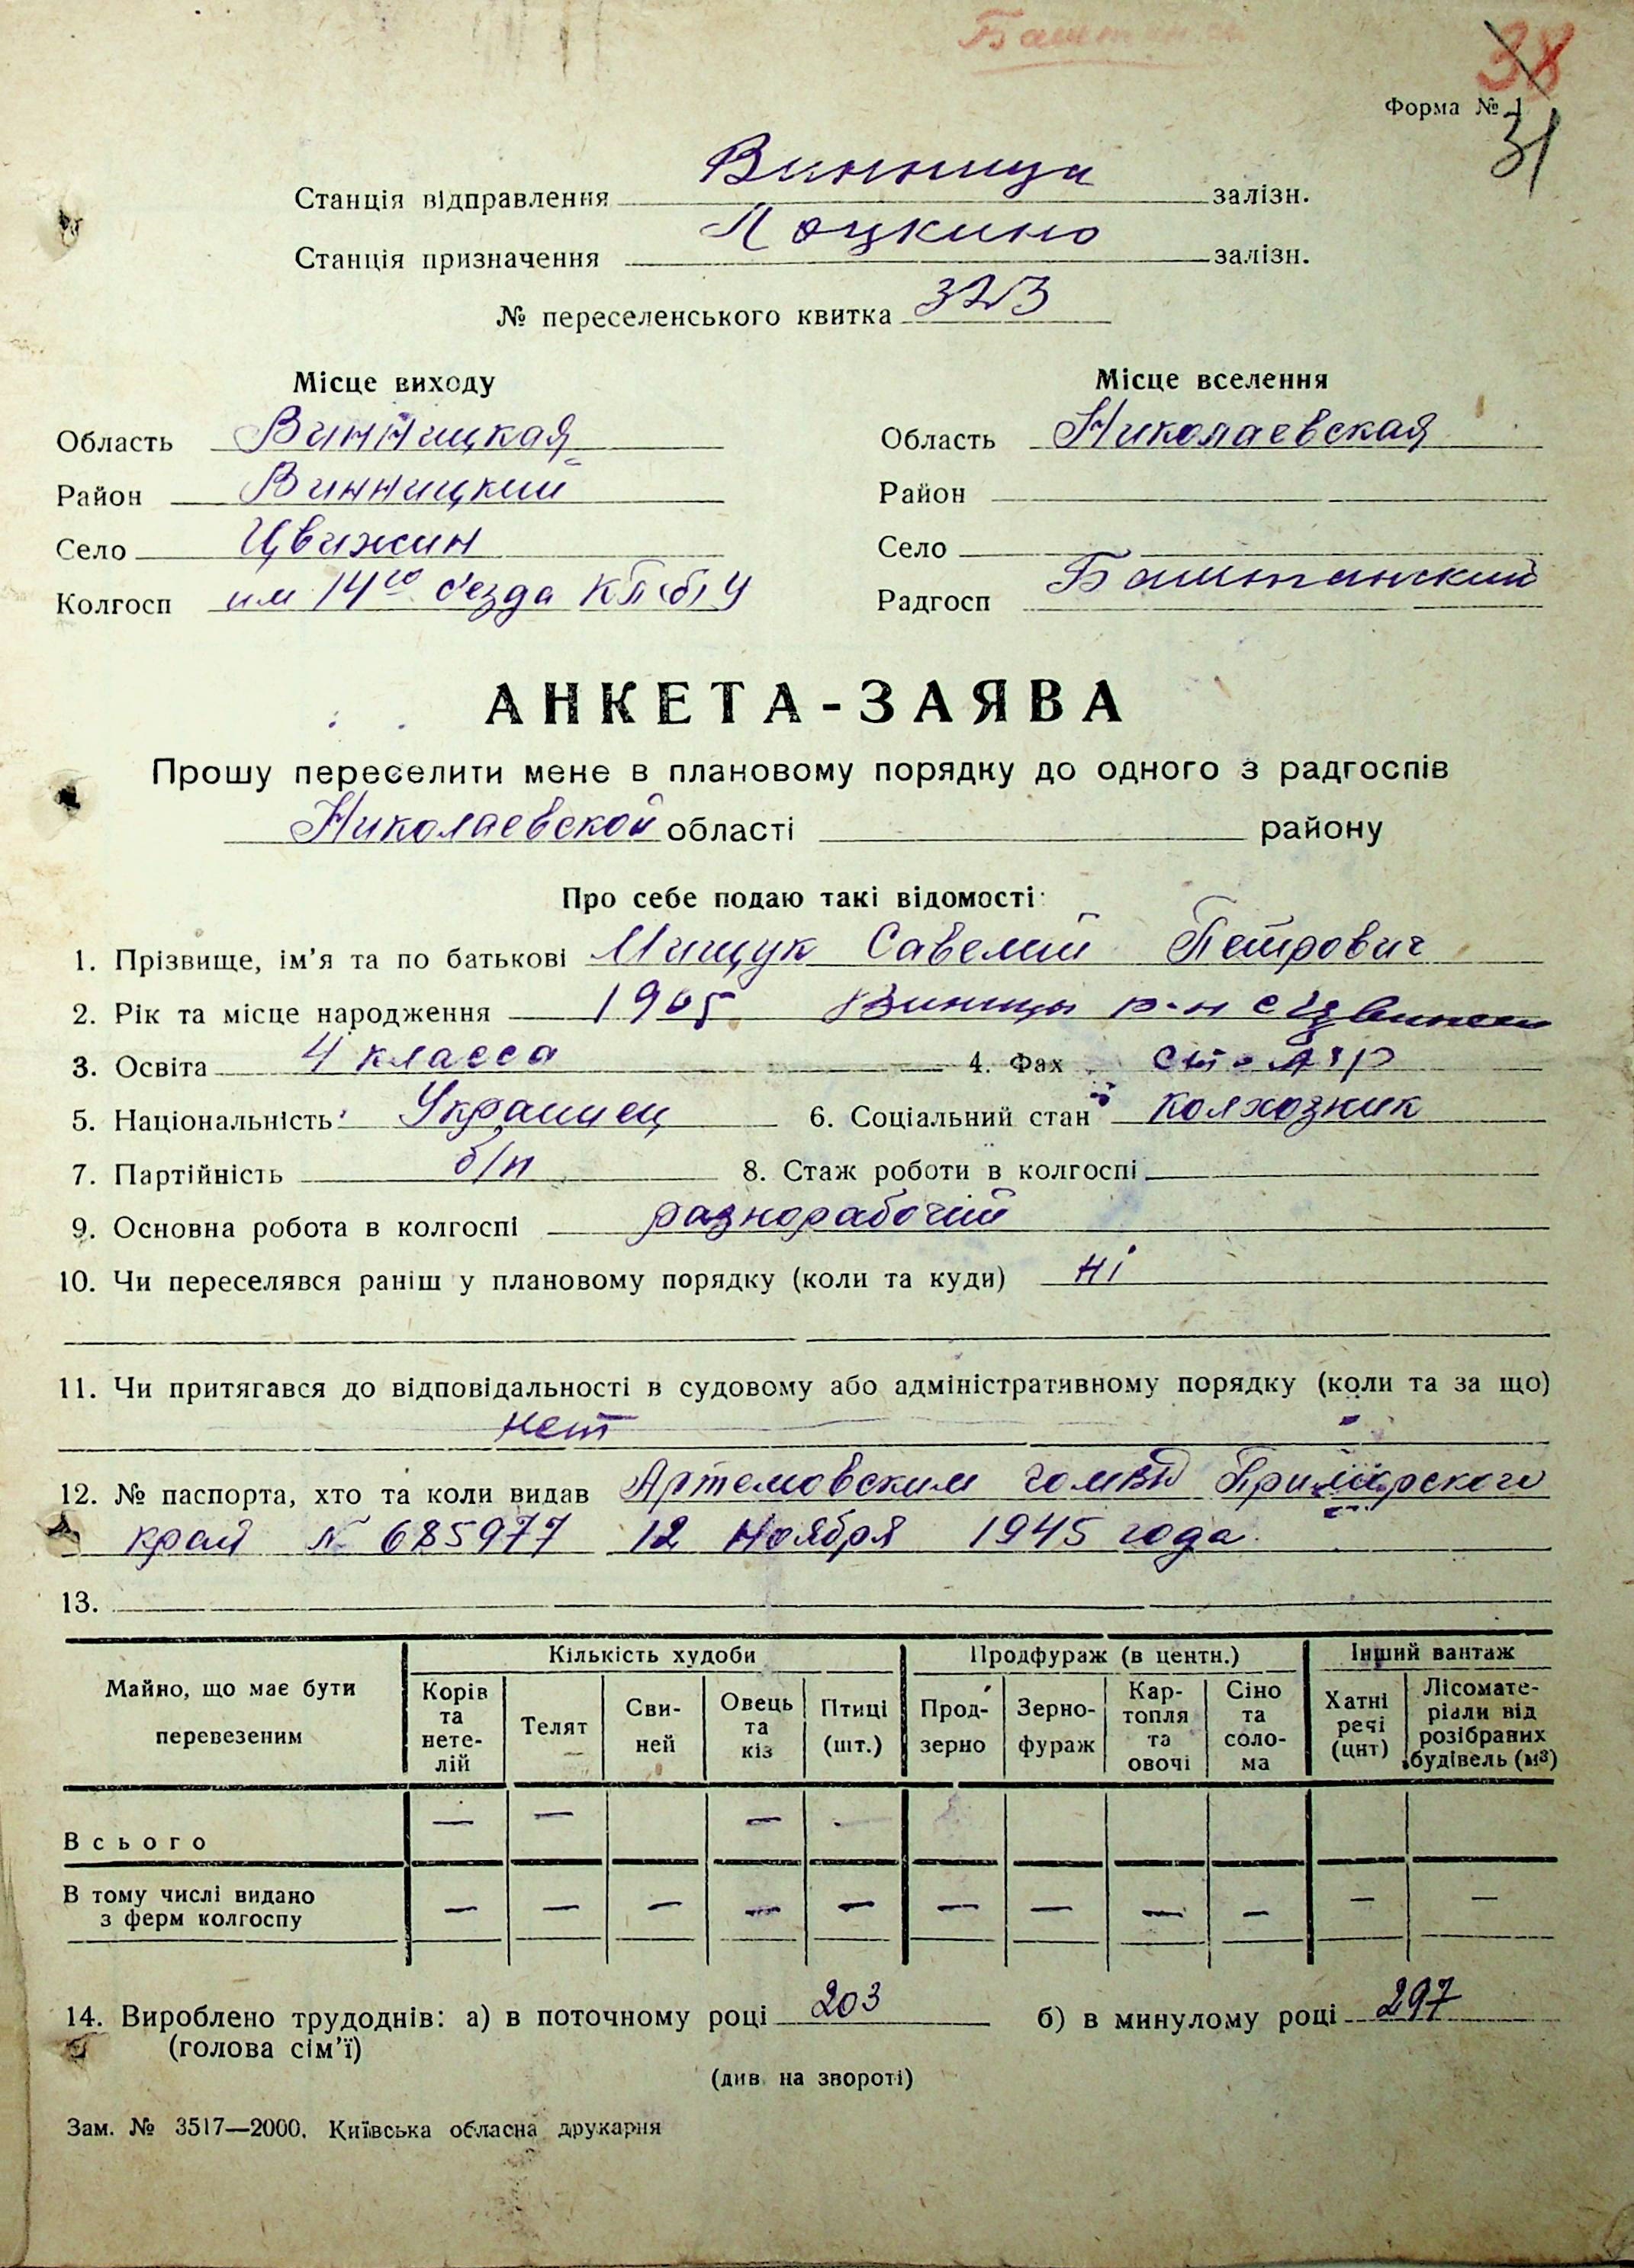 Баштанск
38
Форма № 1
31
Станція відправлення Винница залізн.
Станція призначення Лоцкино залізн.
№ переселенського квитка 323
Місце виходу Місце вселення
Область Винницкая Область Николаевская
Район Винницкий Район
Село Цвижин Село
Колгосп им 14го с'езда КП(б)У Радгосп Баштанский
АНКЕТА-ЗАЯВА
Прошу переселити мене в плановому порядку до одного з радгоспів
Николаевской області району
Про себе подаю такі відомості:
1. Прізвище, ім'я та по батькові Мищук Савелий Петрович
2. Рік та місце народження 1905 Виницы р-н с Цвижин
3. Освіта 4 класса 4. Фах столяр
5. Національність Украинец 6. Соціальний стан колхозник
7. Партійність б/п 8. Стаж роботи в колгоспі
9. Основна робота в колгоспі разнорабочий
10. Чи переселявся раніш у плановому порядку (коли та куди) ні
11. Чи притягався до відповідальності в судовому або адміністративному порядку (коли та за що)
нет
12. № паспорта, хто та коли видав Артемовским Приморского
край № 685977 12 Ноября 1945 года
13.
Кількість худоби Продфураж (в центн.) Інший вантаж
Майно, що має бути перевезеним
Корів та нете-лій
Телят
Сви-ней
Овець та кіз
Птиці (шт.)
Прод-зерно
Зерно-фураж
Кар-топля та овочі
Сіно та соло-ма
Хатні речі (цнт)
Лісомате-ріали від розібраних будівель (м³)
Всього — — —
В тому числі видано
з ферм колгоспу — — — — — — — — — — —
14. Вироблено трудоднів: а) в поточному році 203 б) в минулому році 297
(голова сім'ї)
(див. на звороті)
Зам. № 3517—2000. Київська обласна друкарня